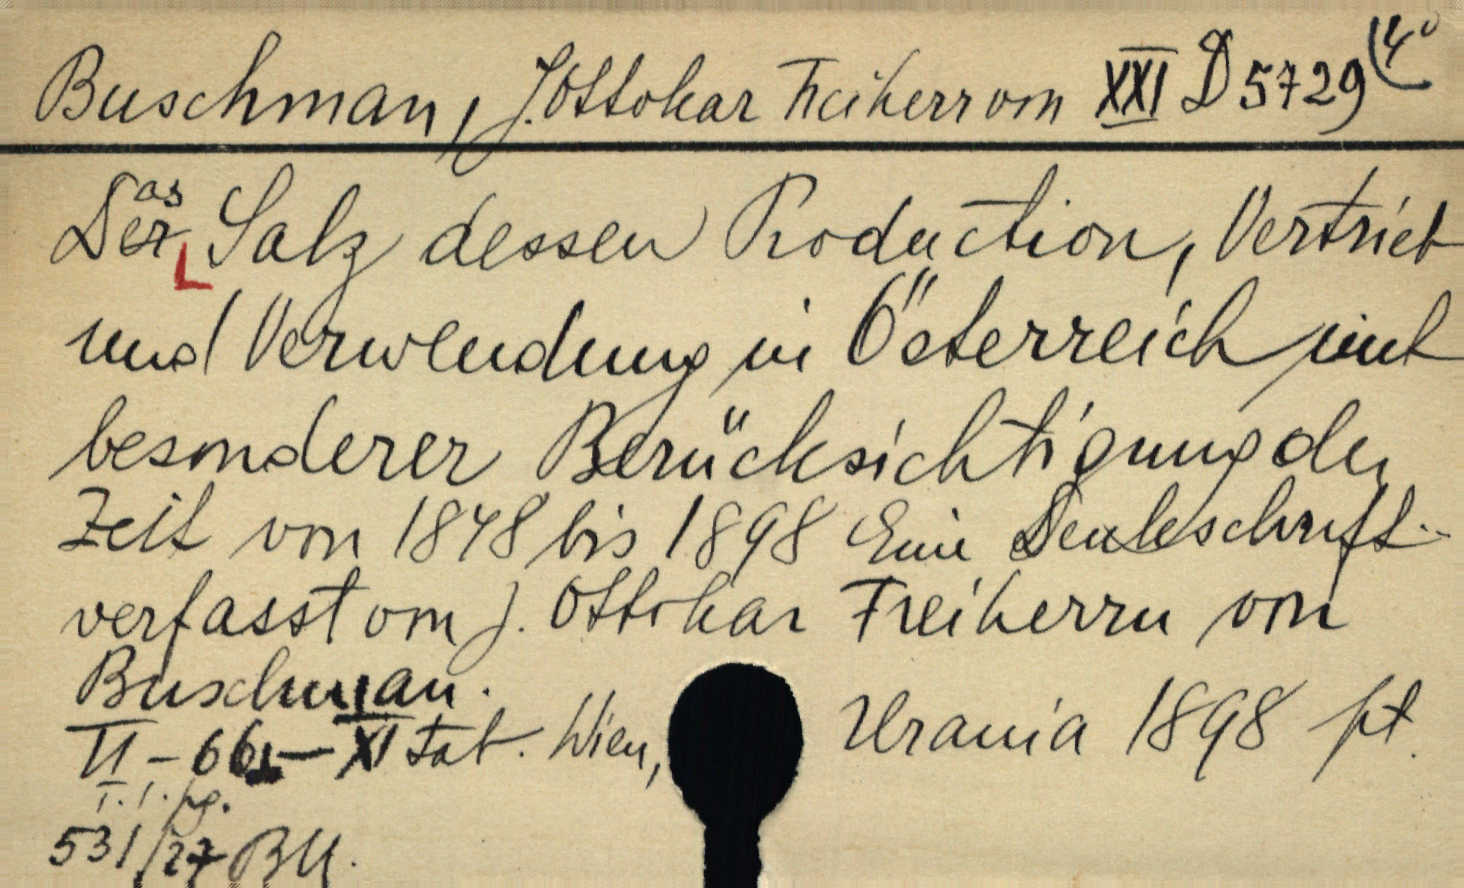 Buschman, J. Ottokar Freiherr von XXI D 5729 (4°
Das Salz dessen Production, Vertrieb
und Verwendung in Österreich mit
besonderer Berücksichtigung der
Zeit von 1848 bis 1898 Eine Denkschrift
verfasst von J. Ottokar Freiherrn von
Buschman.
II - 661 - XI Tab. Wien, Urania 1898 pt.
I. I. pg.
531/27 BU.